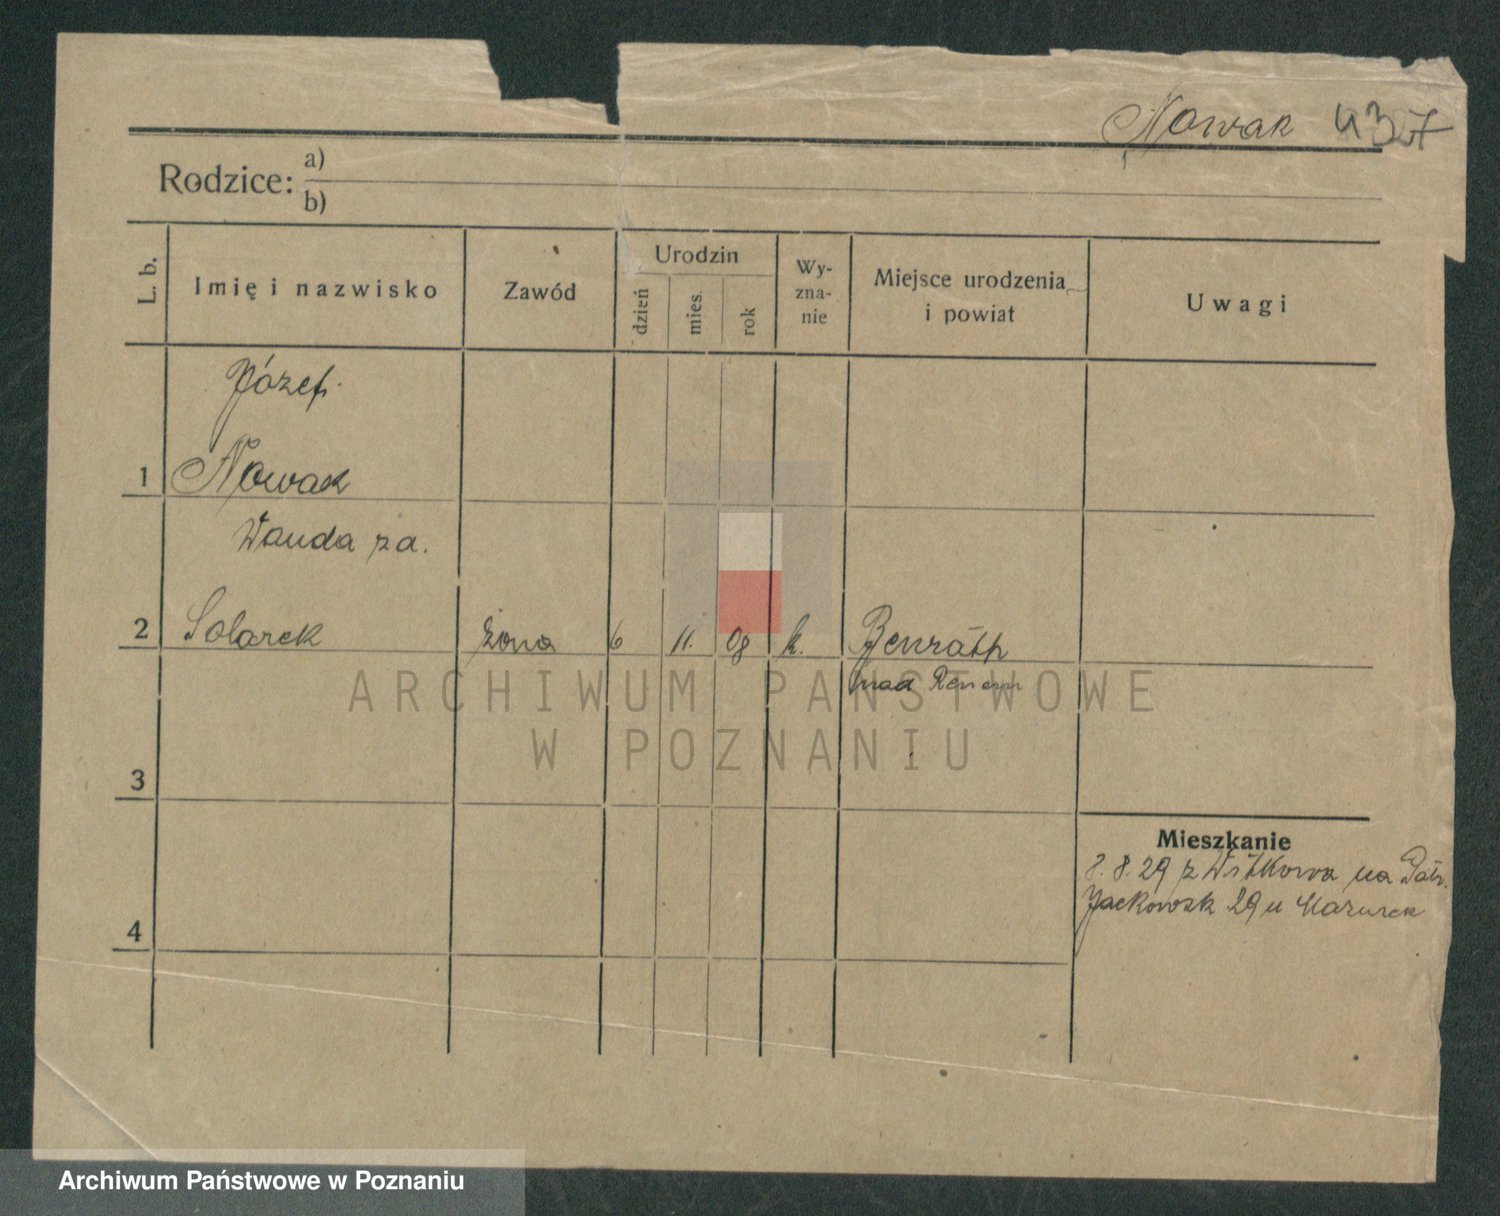 Nowak 4367
Rodzice: a)
b)
L. b.
Imię i nazwisko
Zawód
Urodzin
dzień
mies.
rok
Wy-
zna-
nie
Miejsce urodzenia
i powiat
Uwagi
Józef
1 Nowak
Wanda za.
2 Solarek żona 6 11. 08 k. Benrath
nad Renem
3
Mieszkanie
8. 29 z Witkowa na
Jackowsk 29 u Mazurek
4
ARCHIWUM PAŃSTWOWE
W POZNANIU
Archiwum Państwowe w Poznaniu